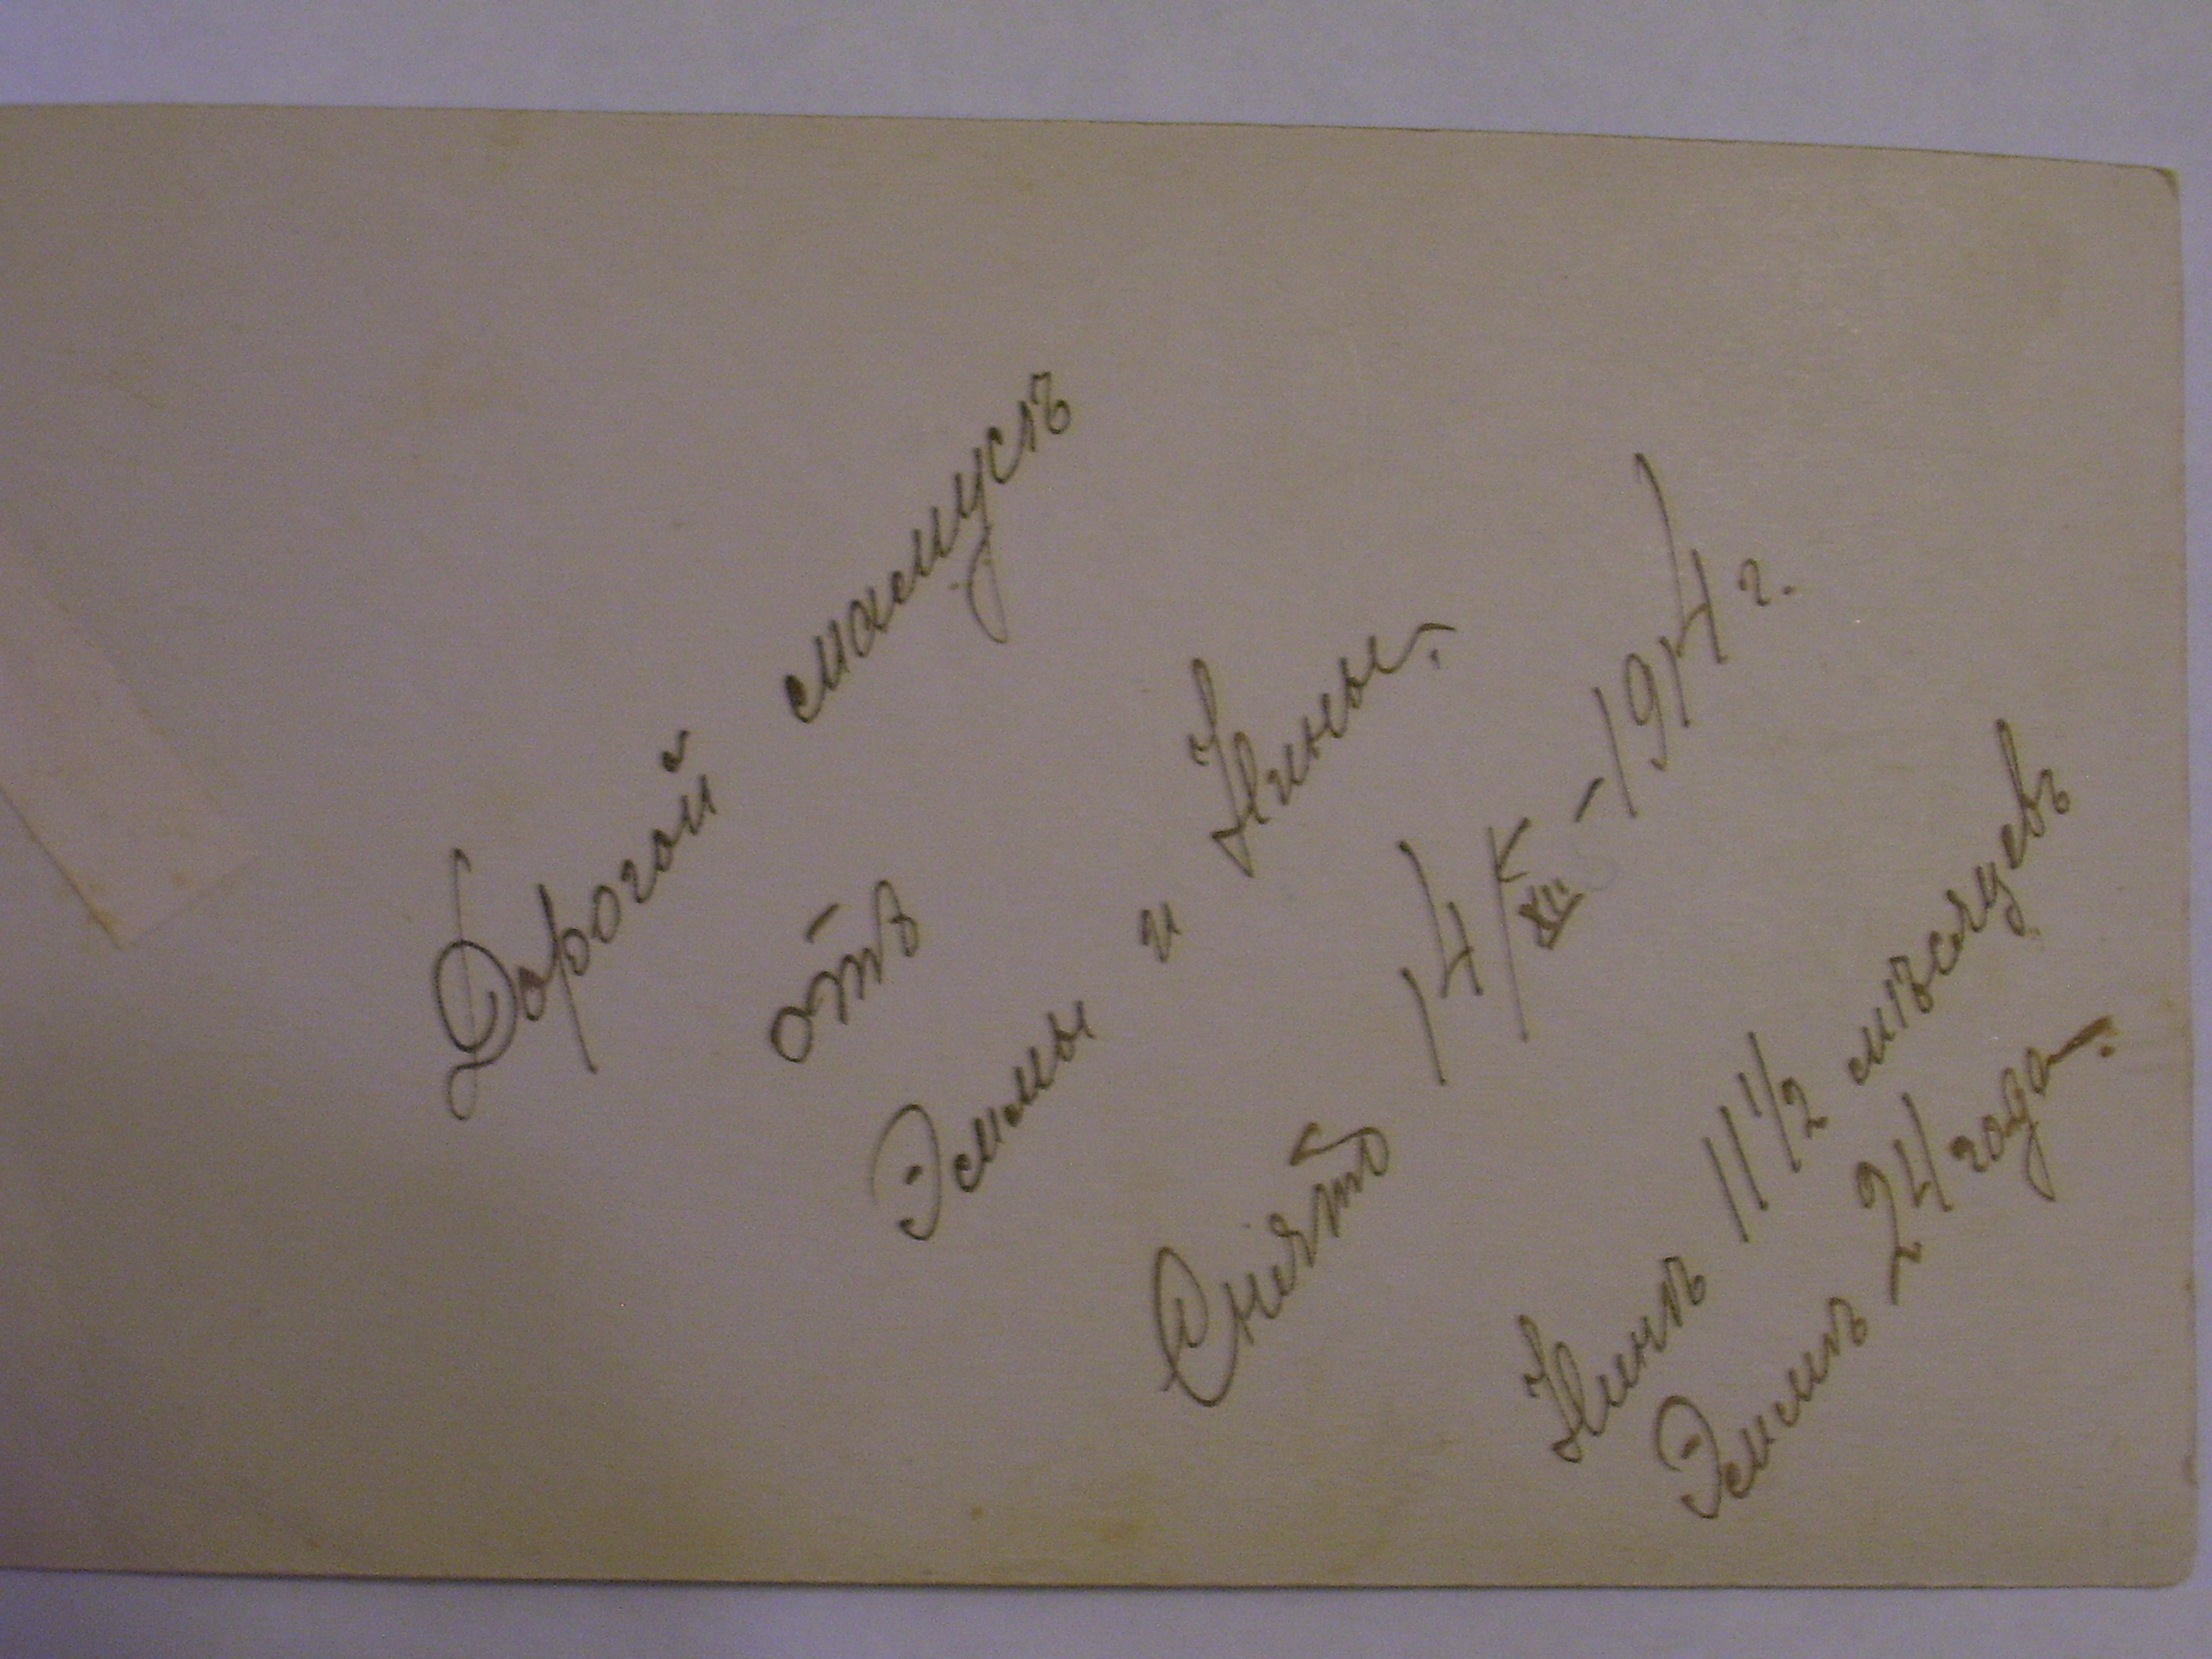 Дорогой мамусѣ
отъ
Эммы и Нины.
Снято 14/XII - 1914 г.
Нинѣ 11 1/2 мѣсяцевъ
Эммѣ 24 года.